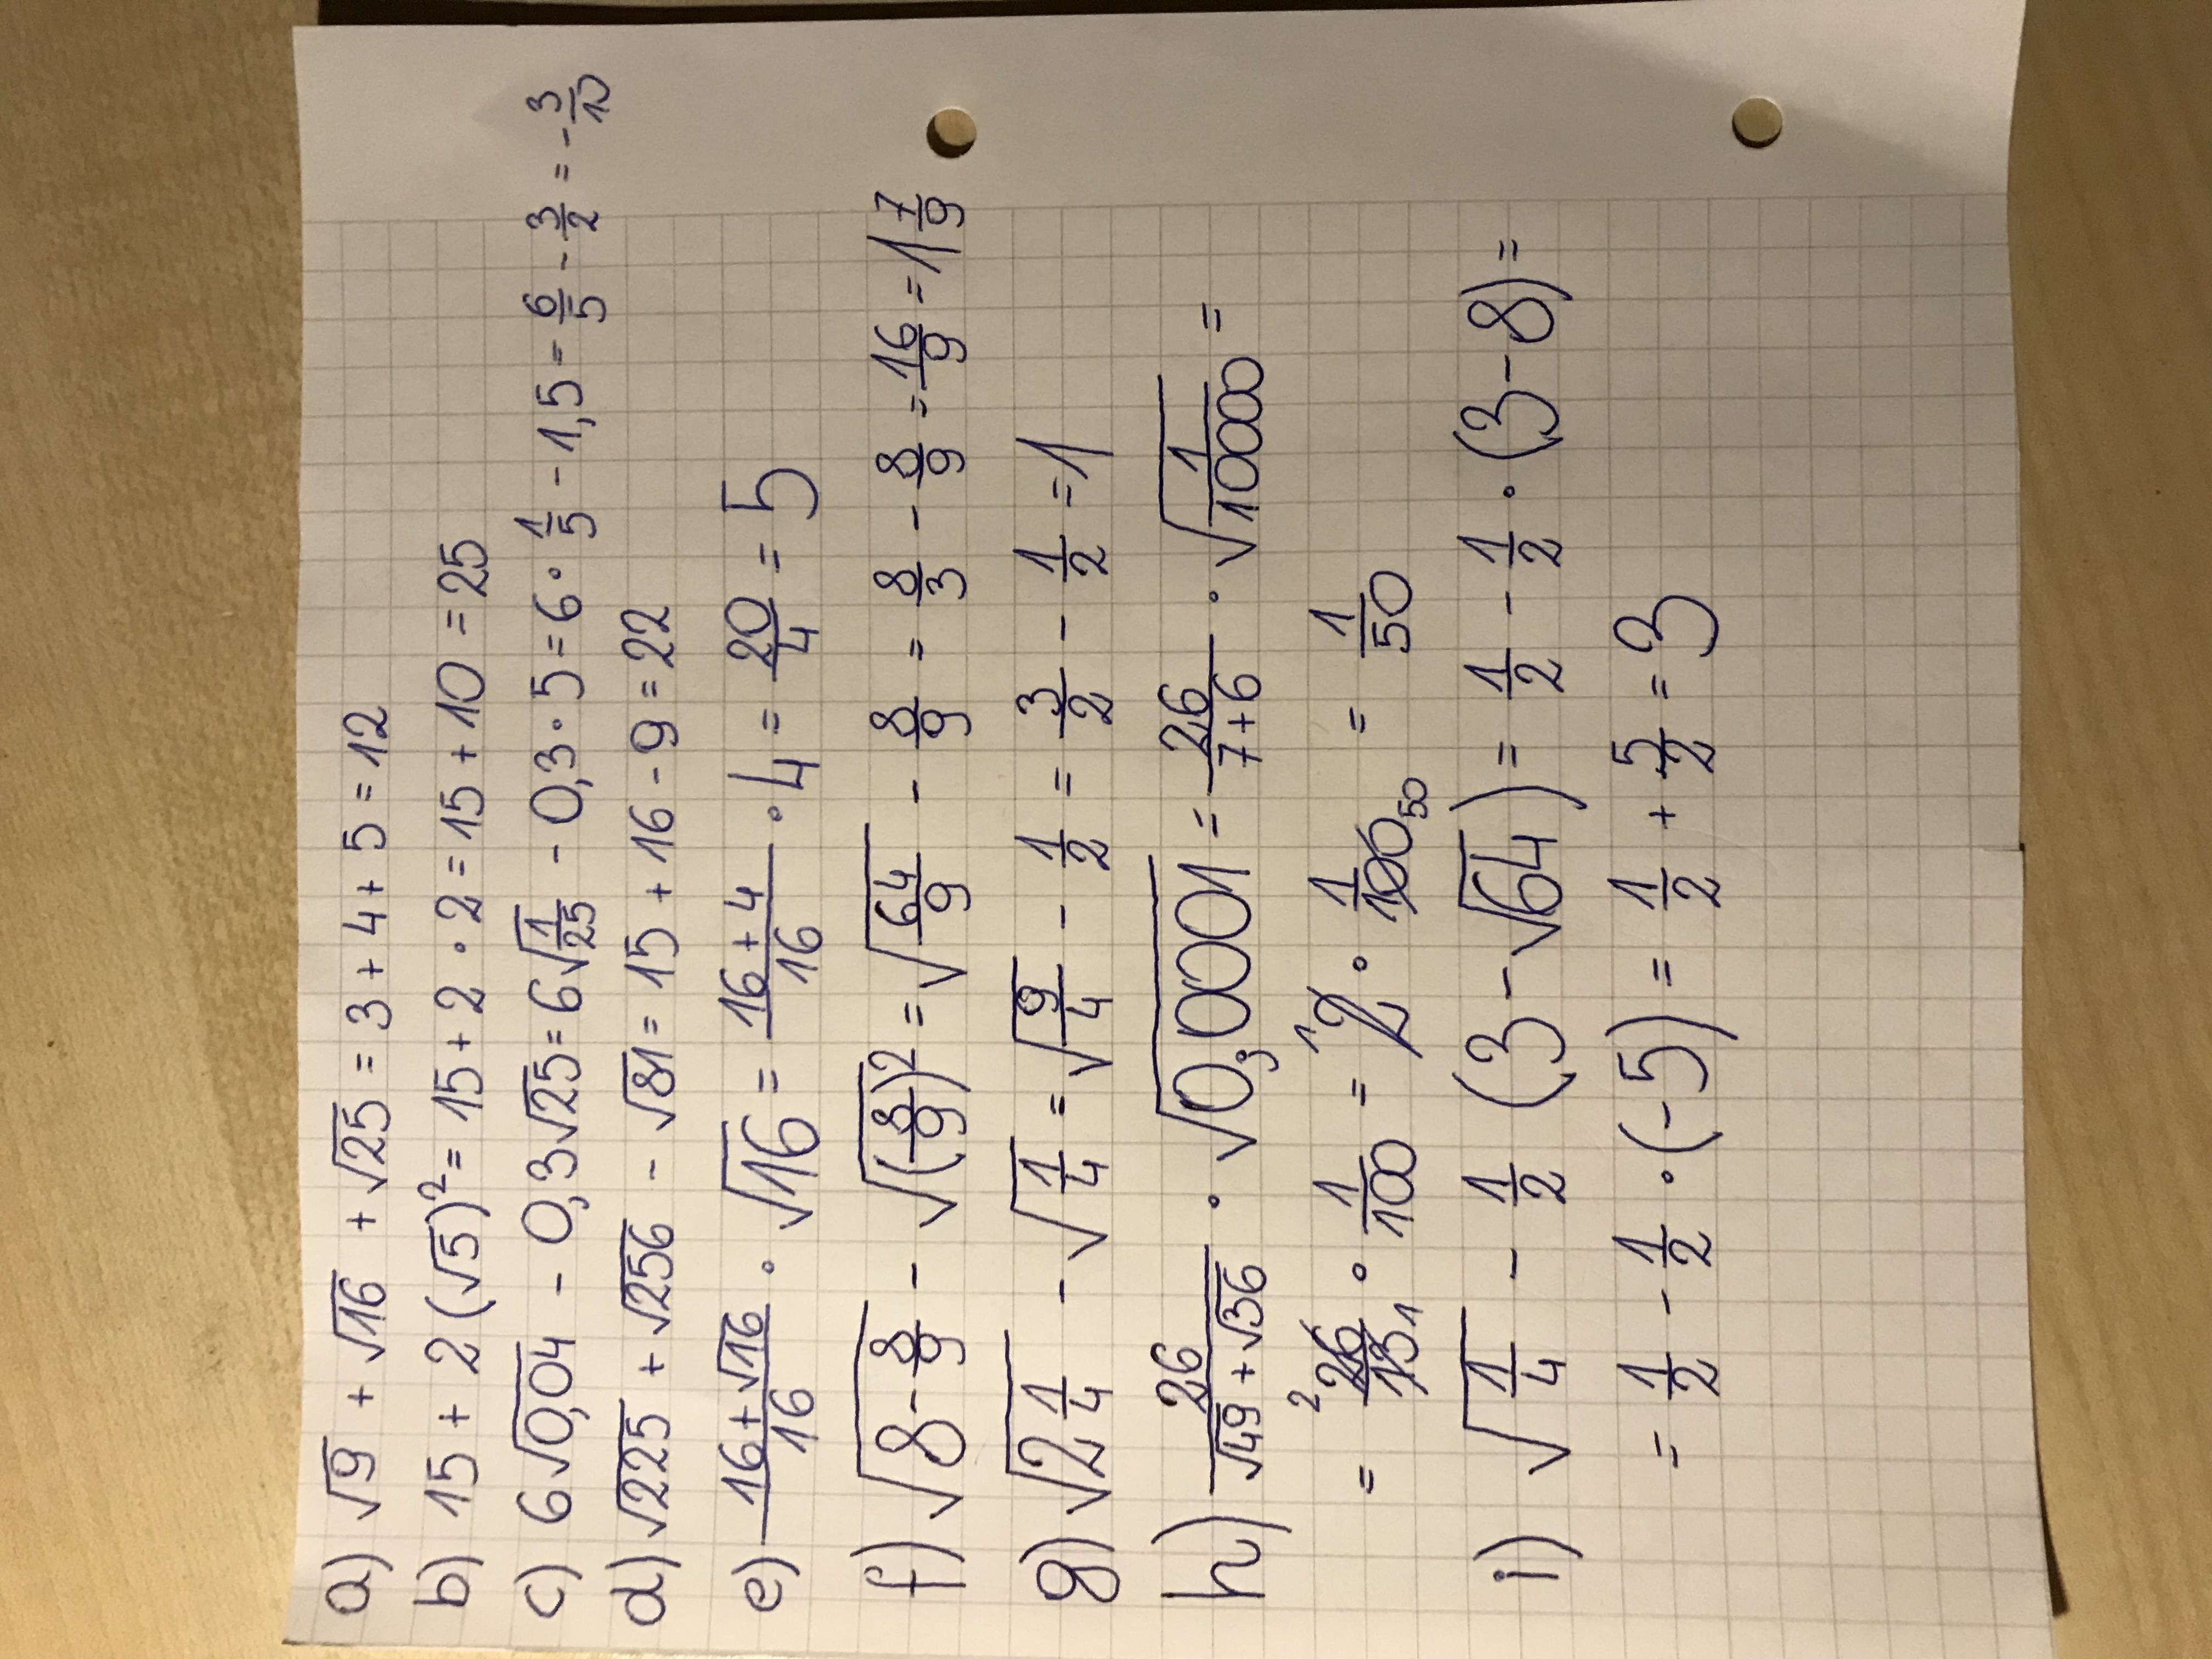 a) √9 + √16 + √25 = 3 + 4 + 5 = 12
b) 15 + 2 (√5)² = 15 + 2 · 2 = 15 + 10 = 25
c) 6√0,04 - 0,3√25 = 6√1/25 - 0,3 · 5 = 6 · 1/5 - 1,5 = 6/5 - 3/2 = - 3/10
d) √225 + √256 - √81 = 15 + 16 - 9 = 22
e) (16 + √16)/16 · √16 = (16 + 4)/16 · 4 = 20/4 = 5
f) √(8 - 8/9) - √(8/9)² = √(64/9) - 8/9 = 8/3 - 8/9 = 16/9 = 1 7/9
g) √(2 1/4) - √(1/4) = √(9/4) - 1/2 = 3/2 - 1/2 = 1
h) 26/(√49 + √36) · √0,0001 = 26/(7+6) · √(1/10000) =
= ²26/13₁ · 1/100 = ¹2 · 1/100₅₀ = 1/50
i) √(1/4) - 1/2 (3 - √64) = 1/2 - 1/2 · (3 - 8) =
= 1/2 - 1/2 · (-5) = 1/2 + 5/2 = 3